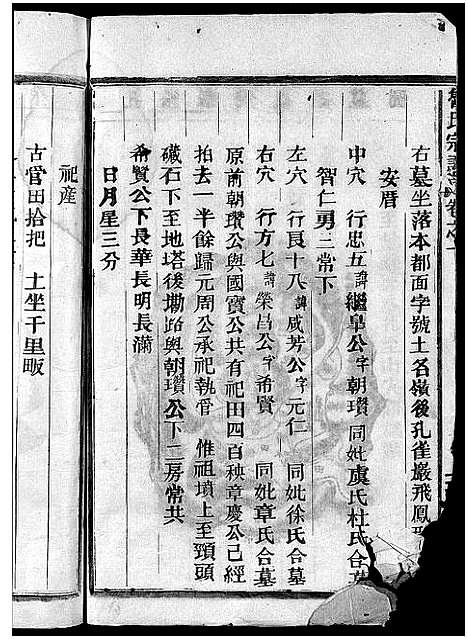 氏宗譜
右墓坐落本都面字號土名嶺後孔雀巖飛鳳
安厝
中穴　行忠五諱繼皐公字朝瓚　同妣虞氏杜氏合
智仁勇三常下
左穴　行艮十八諱咸芳公字元仁　同妣徐氏合墓
右穴　行方七諱榮昌公字希賢　同妣章氏合墓
原前朝瓚公與國賓公共有祀田四百秧章慶公已經
拍去一半餘歸元周公承祀執管　惟祖墳上至頸頭
礒石下至地塔後磡路與朝瓚公下二房常共
希賢公下長華長明長滿
日月星三分
祀產
古官田拾把　土坐千里畈